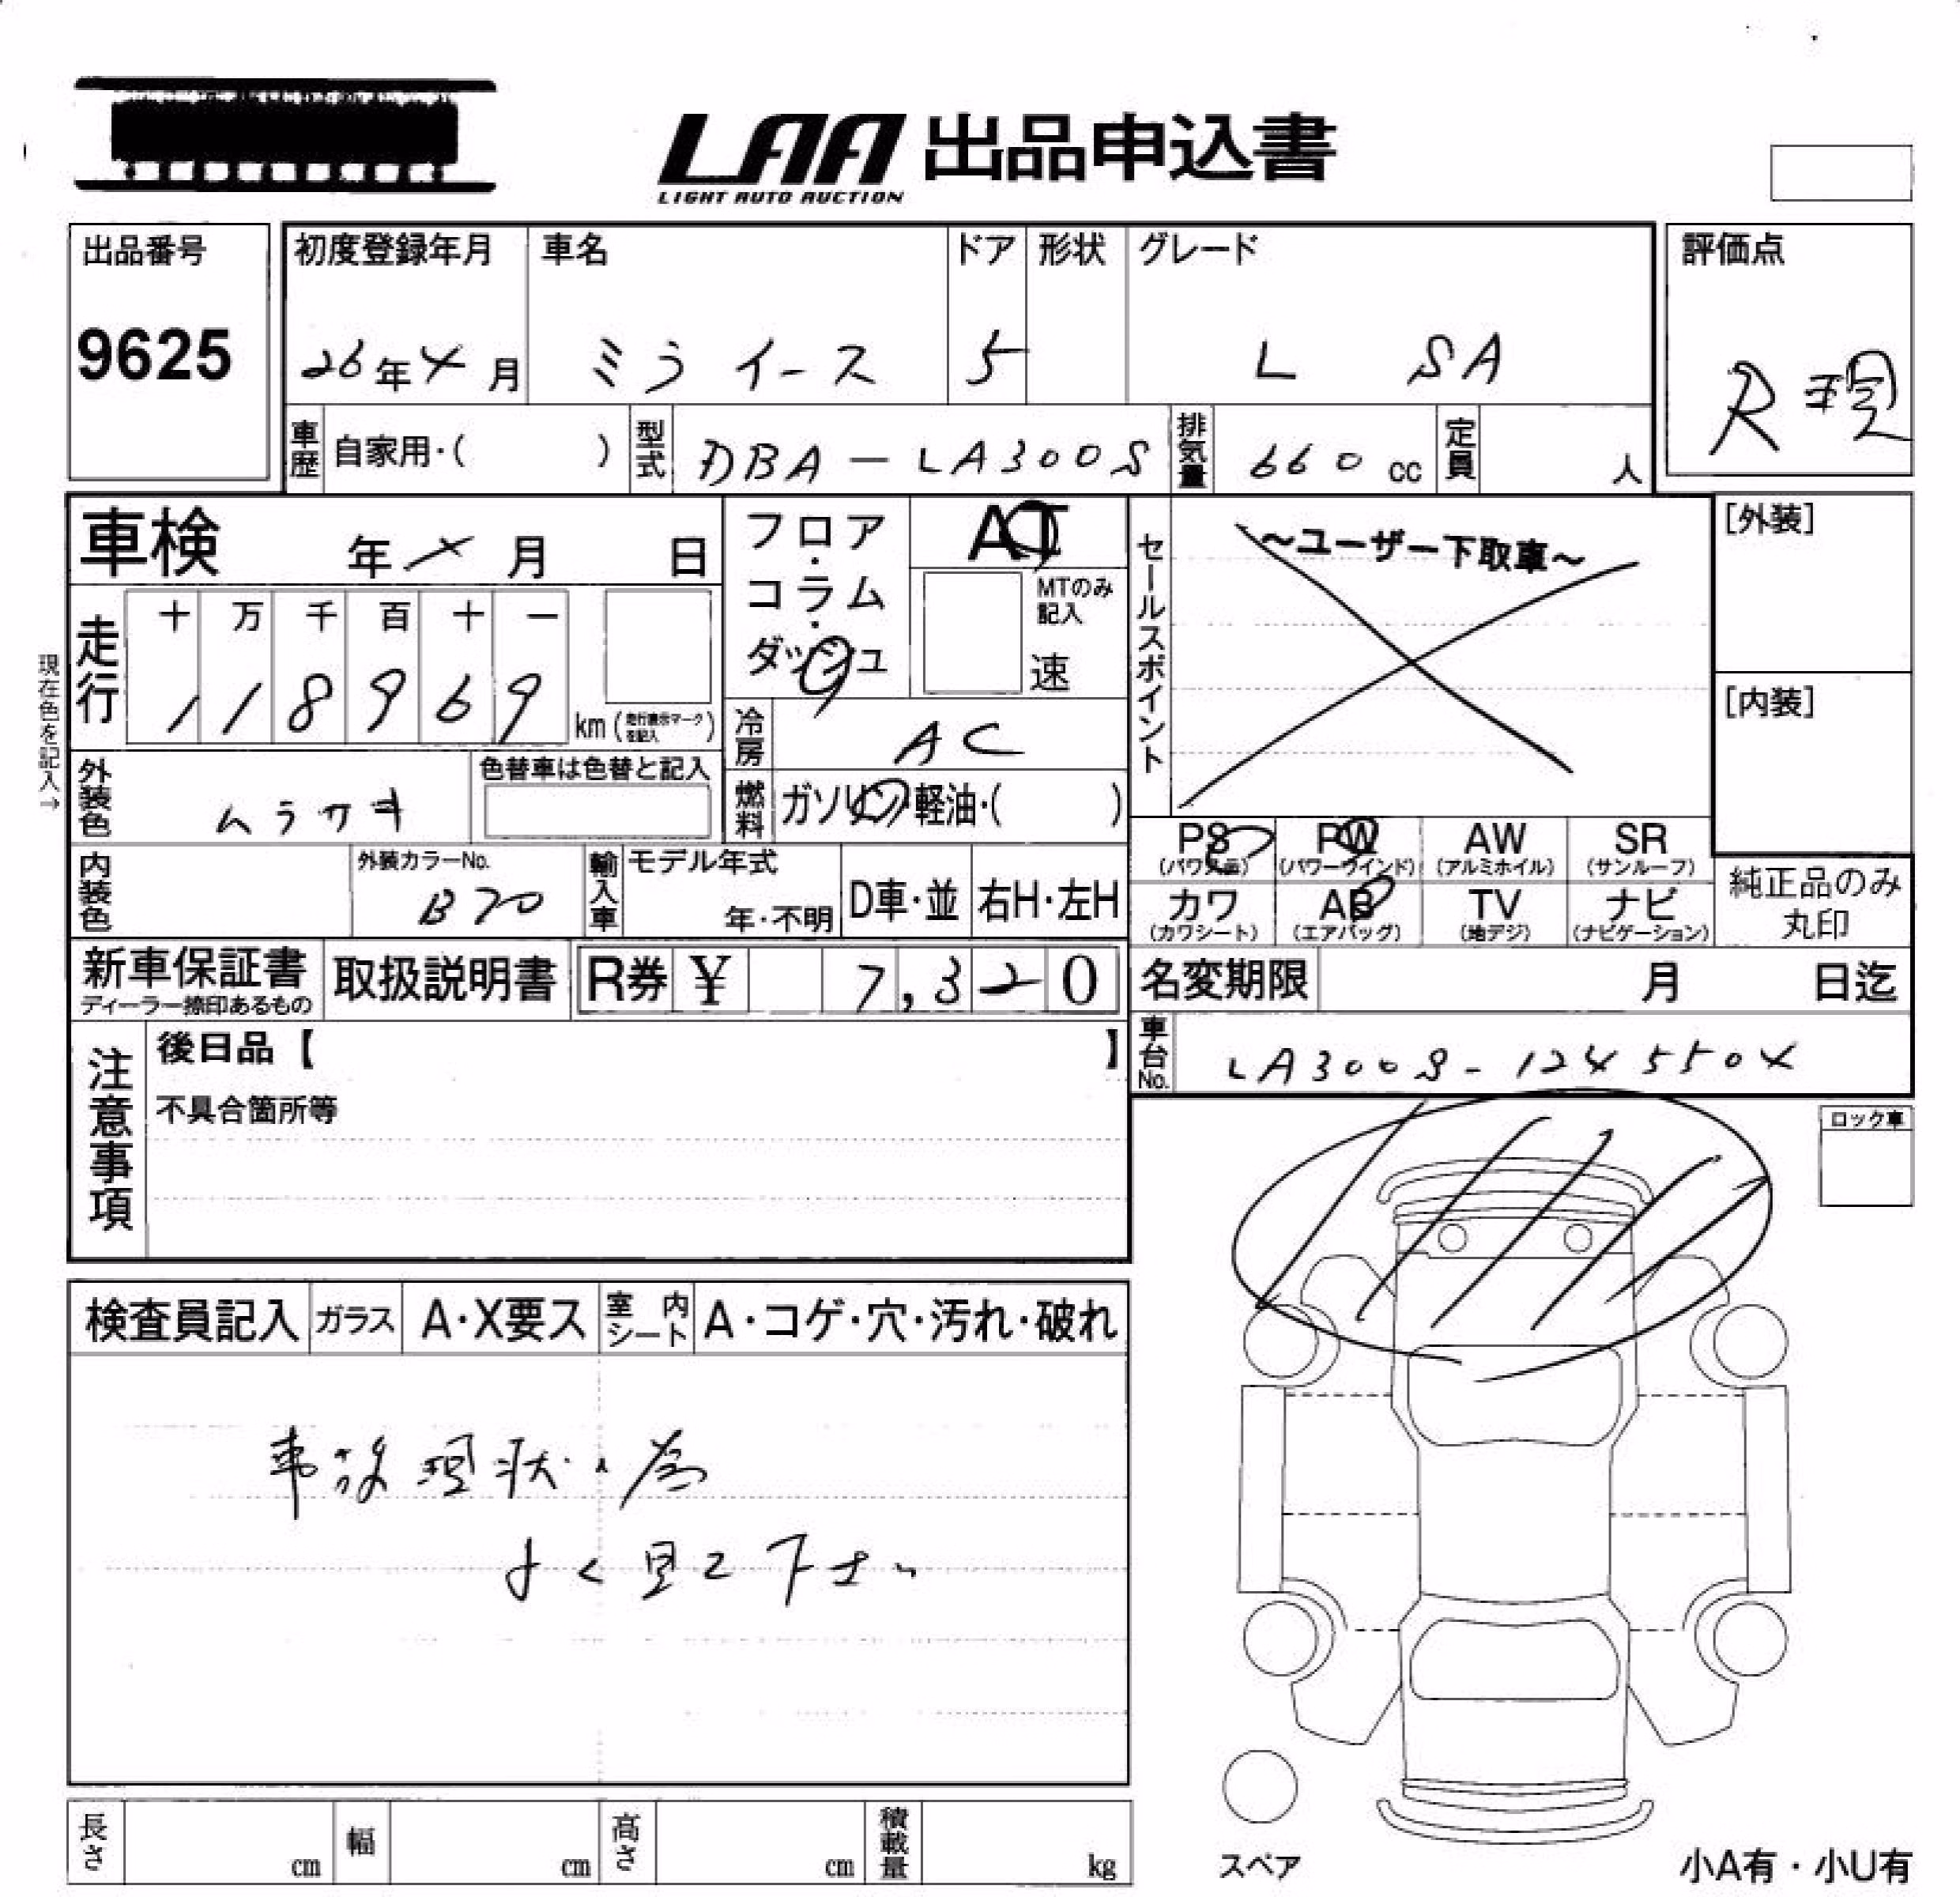 LAA 出品申込書
LIGHT AUTO AUCTION
出品番号
9625
初度登録年月
26年4月
車名
ミライース
ドア
5
形状
グレード
L SA
評価点
R現
車歴
自家用・( )
型式
DBA-LA300S
排気量
660 cc
定員
人
車検
年 月 日
走行
十 万 千 百 十 一
1 1 8 9 6 9
km (走行表示マークを記入)
現在色を記入→
フロア・コラム・ダッシュ
AT
MTのみ記入
速
冷房
AC
燃料
ガソリン・軽油・( )
外装色
ムラサキ
色替車は色替と記入
内装色
外装カラーNo.
B70
輸入車
モデル年式
年・不明
D車・並
右H・左H
新車保証書
ディーラー捺印あるもの
取扱説明書
R券 ¥ 7,320
セールスポイント
~ユーザー下取車~
[外装]
[内装]
PS (パワステ)
PW (パワーウインド)
AW (アルミホイル)
SR (サンルーフ)
カワ (カワシート)
AB (エアバッグ)
TV (地デジ)
ナビ (ナビゲーション)
純正品のみ
丸印
名変期限
月 日迄
車台No.
LA300S-1245504
注意事項
後日品【 】
不具合箇所等
ロック車
検査員記入
ガラス
A・X要ス
室内シート
A・コゲ・穴・汚れ・破れ
事故現状の為
よく見て下さい
長さ
cm
幅
cm
高さ
cm
積載量
kg
スペア
小A有・小U有